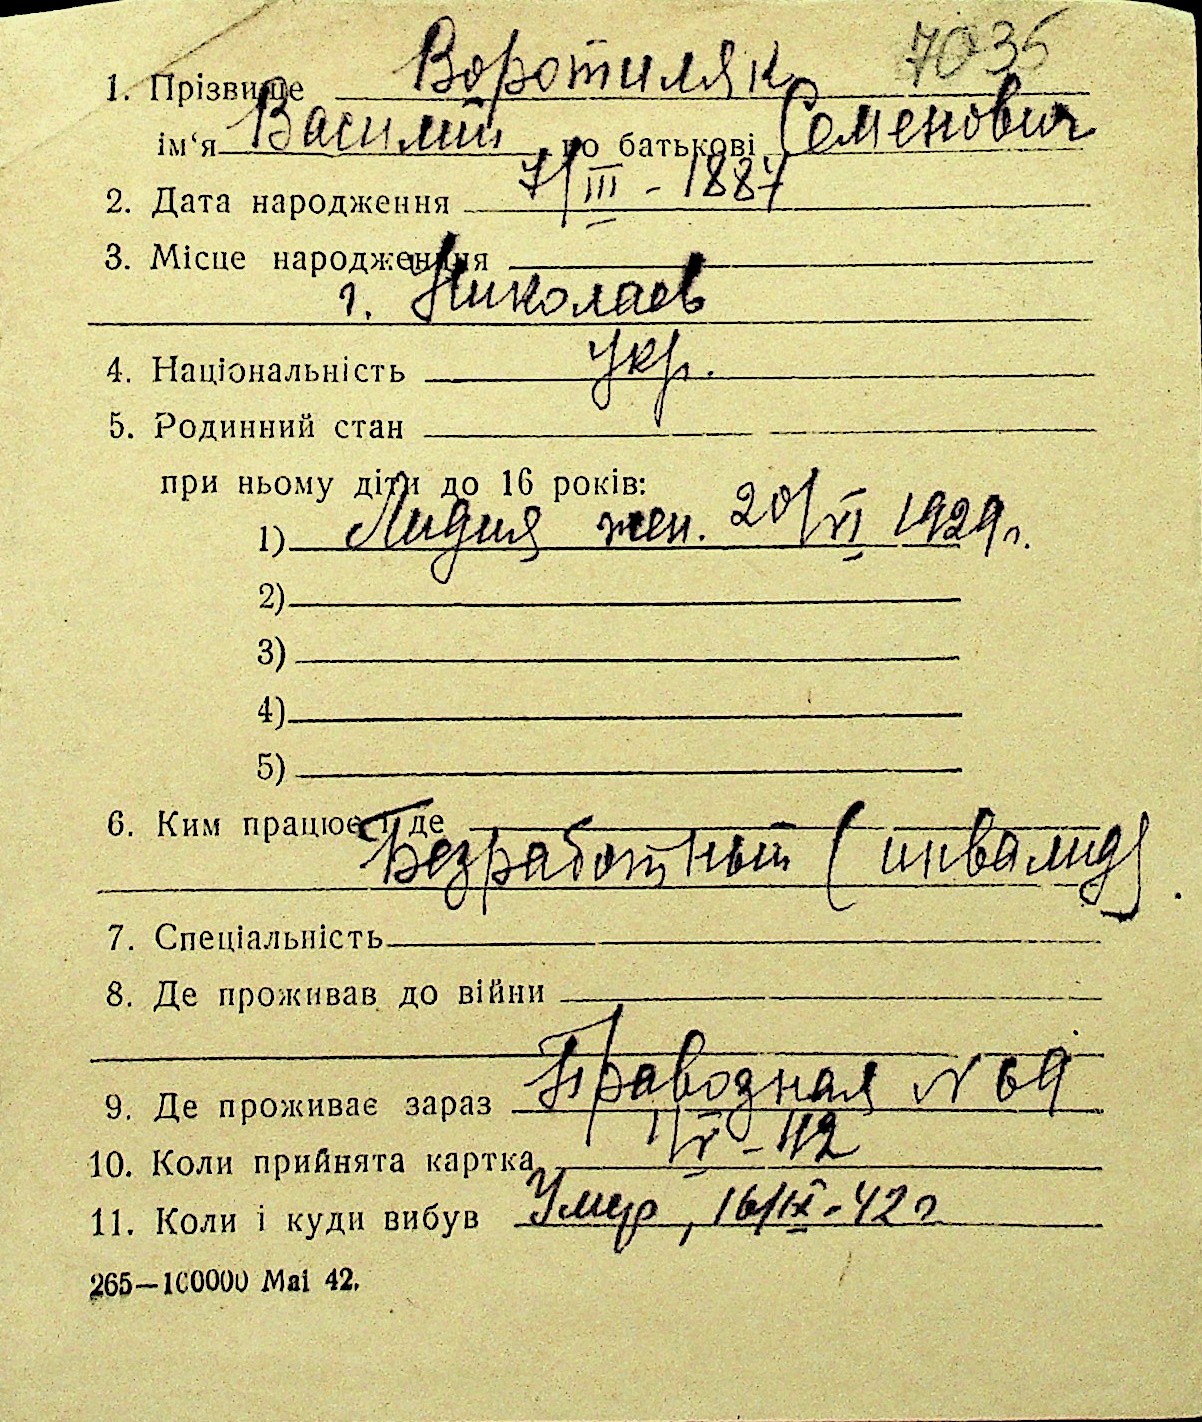 7035
1. Прізвище Воротиляк
ім‘я Василий по батькові Семенович
2. Дата народження 7/III - 1887
3. Місце народження
г. Николаев
4. Національність укр.
5. Родинний стан
при ньому діти до 16 років:
1) Лидия жен. 20/VI 1929г.
2)
3)
4)
5)
6. Ким працює і де
Безработный (инвалид).
7. Спеціальність
8. Де проживав до війни
9. Де проживає зараз Праводная N 69
10. Коли прийнята картка 1/V - 42
11. Коли і куди вибув Умер, 16/IX - 42г
265—100000 Mai 42.